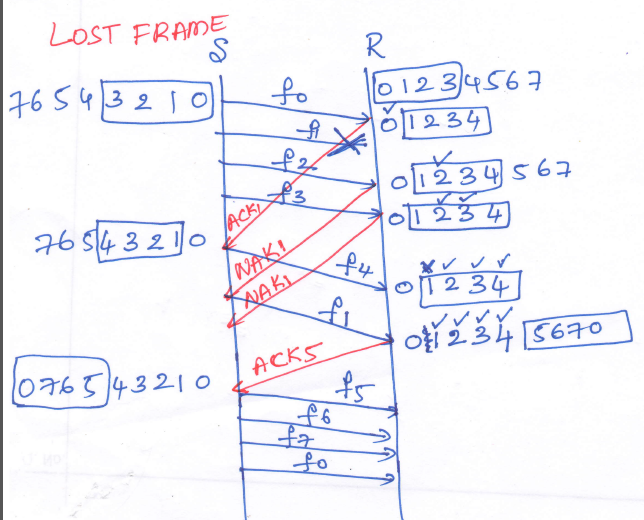 LOST FRAME
S R
7 6 5 4 3 2 1 0 f0 0 1 2 3 4 5 6 7
f1 0 1 2 3 4
f2 0 1 2 3 4 5 6 7
f3 0 1 2 3 4
ACK1
7 6 5 4 3 2 1 0 NAK1 f4 0 1 2 3 4
NAK1
f1 0 1 2 3 4 5 6 7 0
ACK5
0 7 6 5 4 3 2 1 0 f5
f6
f7
f0